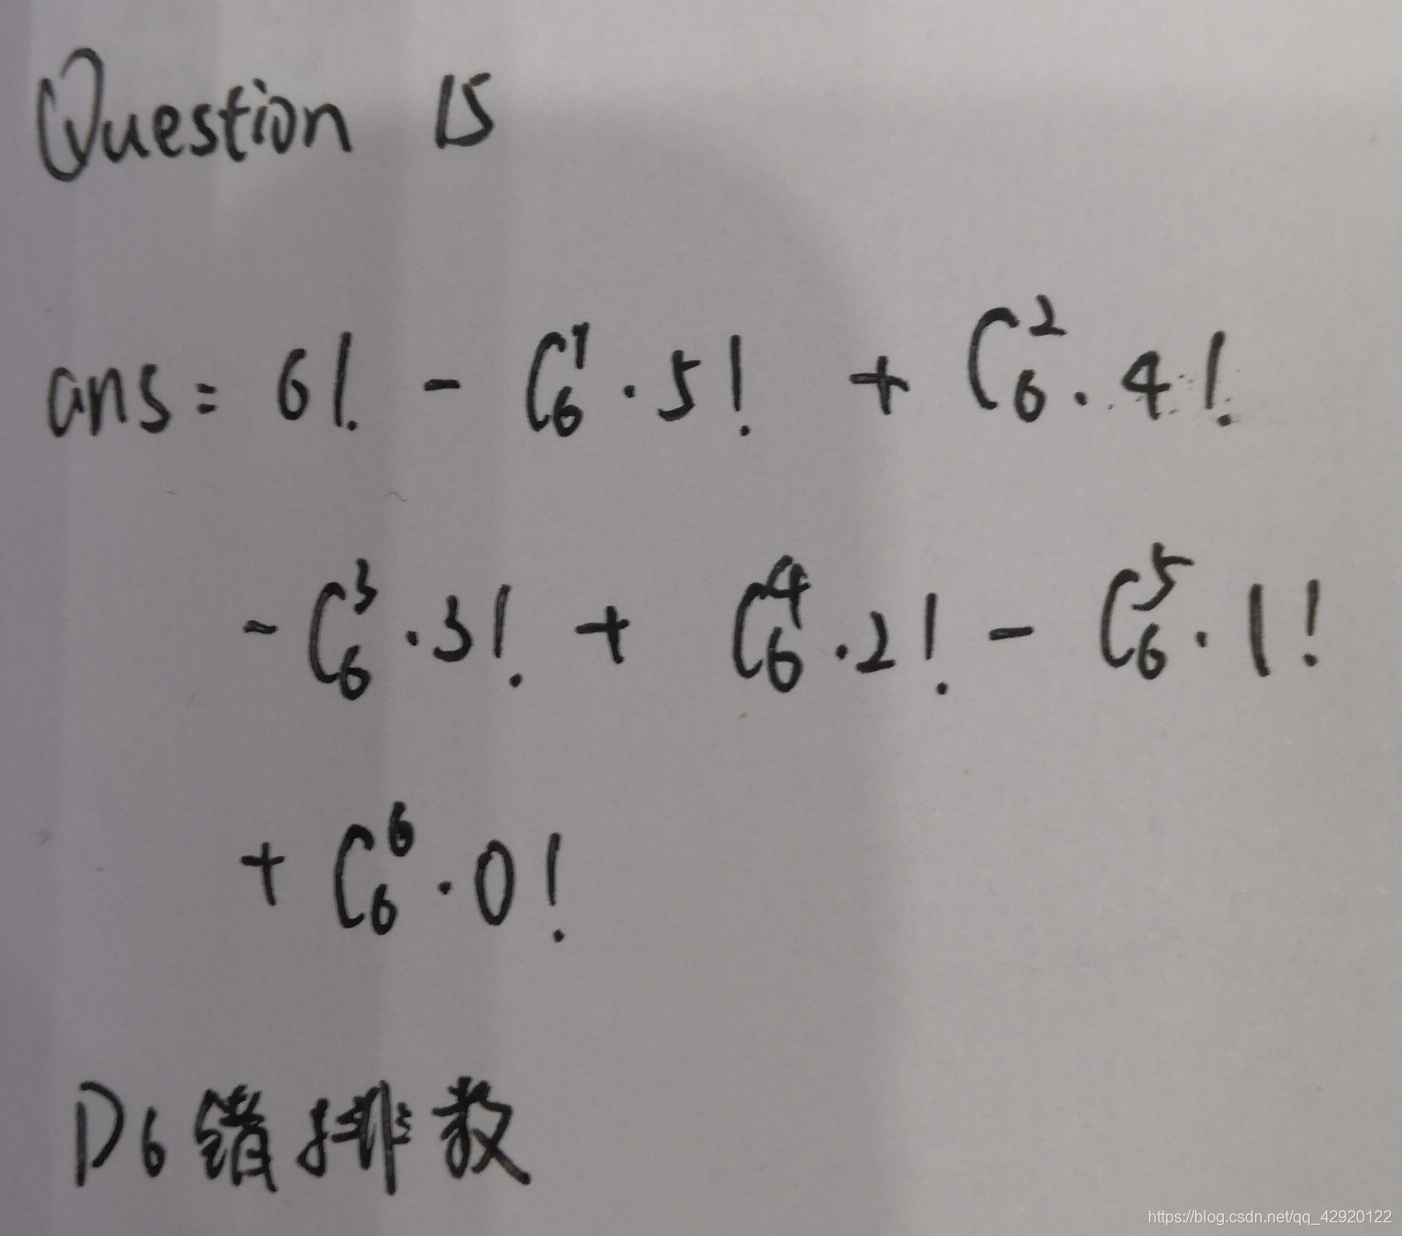 Question 15
ans = 6! - C₆¹ · 5! + C₆² · 4!
- C₆³ · 3! + C₆⁴ · 2! - C₆⁵ · 1!
+ C₆⁶ · 0!
D6 错排数
https://blog.csdn.net/qq_42920122